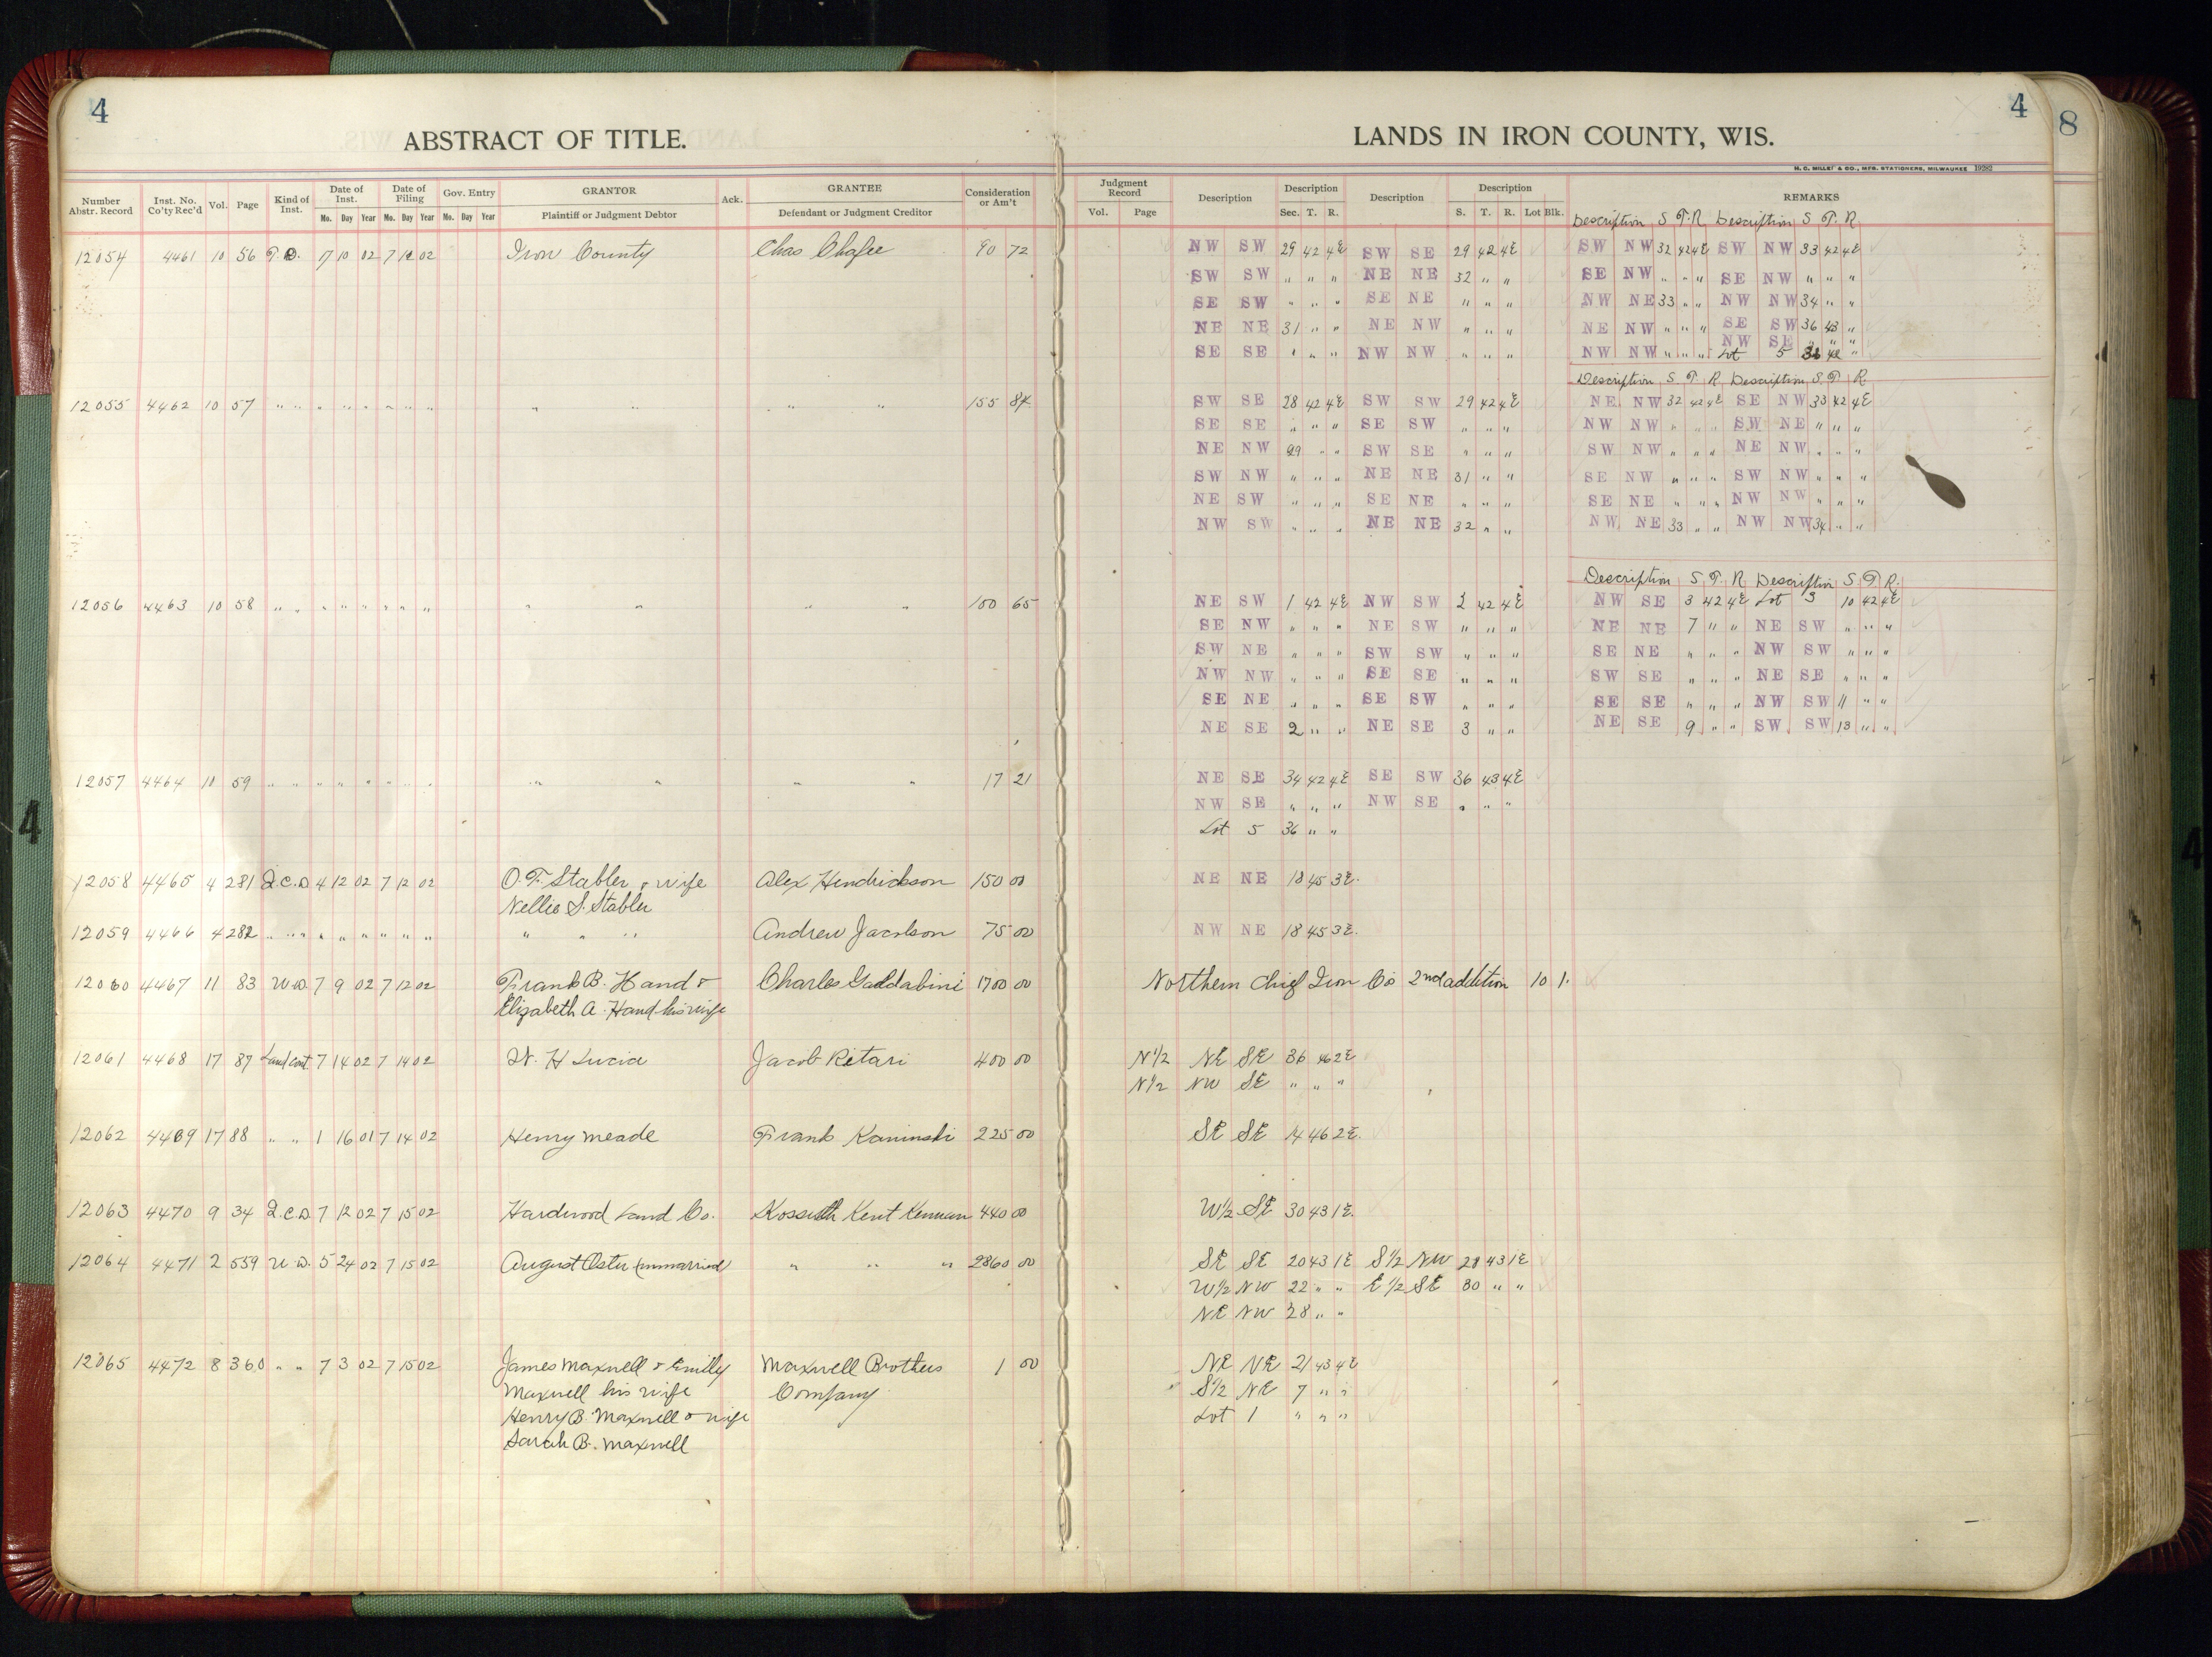 4
ABSTRACT OF TITLE.
LANDS IN IRON COUNTY, WIS.
4
8
H. C. MILLER & CO., MFR. STATIONERS, MILWAUKEE 19282
Number Abstr. Record | Inst. No. Co'ty Rec'd | Vol. | Page | Kind of Inst. | Date of Inst. Mo. Day Year | Date of Filing Mo. Day Year | Gov. Entry Mo. Day Year | GRANTOR Plaintiff or Judgment Debtor | Ack. | GRANTEE Defendant or Judgment Creditor | Consideration or Am't | Judgment Record Vol. Page | Description | Description Sec. T. R. | Description | Description S. T. R. Lot Blk. | REMARKS
Description S T. R Description S T. R
12054 4461 10 56 T. D. 7 10 02 7 12 02 Iron County Chas Chafee 90 72 NW SW 29 42 4E SW SE 29 42 4E SW NW 32 42 4E SW NW 33 42 4E
SW SW " " " NE NE 32 " " SE NW " " " SE NW " " "
SE SW " " " SE NE " " " NW NE 33 " " NW NW 34 " "
NE NE 31 " " NE NW " " " NE NW " " " SE SW 36 43 "
NW SE " " "
SE SE " " " NW NW " " " NW NW " " " Lot 5 36 42 "
Description S T. R Description S. T. R
12055 4462 10 57 " " " " " " " " " " 155 84 SW SE 28 42 4E SW SW 29 42 4E NE NW 32 42 4E SE NW 33 42 4E
SE SE " " " SE SW " " " NW NW " " " SW NE " " "
NE NW 29 " " SW SE " " " SW NW " " " NE NW " " "
SW NW " " " NE NE 31 " " SE NW " " " SW NW " " "
NE SW " " " SE NE " " " SE NE " " " NW NW " " "
NW SW " " " NE NE 32 " " NW NE 33 " " NW NW 34 " "
Description S. T. R Description S. T. R.
12056 4463 10 58 " " " " " " " " " " " " 100 65 NE SW 1 42 4E NW SW 2 42 4E NW SE 3 42 4E Lot 3 10 42 4E
SE NW " " " NE SW " " " NE NE 7 " " NE SW " " "
SW NE " " " SW SW " " " SE NE " " " NW SW " " "
NW NW " " " SE SE " " " SW SE " " " NE SE " " "
SE NE " " " SE SW " " " SE SE " " " NW SW 11 " "
NE SE 2 " " NE SE 3 " " NE SE 9 " " SW SW 13 " "
12057 4464 10 59 " " " " " " " " " " " " 17 21 NE SE 34 42 4E SE SW 36 43 4E
NW SE " " " NW SE " " "
Lot 5 36 " "
12058 4465 4 281 Q.C.D 4 12 02 7 12 02 O. F. Stabler & wife Alex Hendrickson 150 00 NE NE 18 45 3E.
Nellie S. Stabler
12059 4466 4 282 " " " " " " " " " " " " Andrew Jacobson 75 00 NW NE 18 45 3E.
12060 4467 11 83 W.D. 7 9 02 7 12 02 Frank B. Hand & Charles Gaddabini 1700 00 Northern Chief Iron Co 2nd addition 10 1.
Elizabeth A. Hand his wife
12061 4468 17 87 Land Cont. 7 14 02 7 14 02 W. H Lucia Jacob Ritari 400 00 N 1/2 NE SE 36 46 2E
N 1/2 NW SE " " "
12062 4469 17 88 " " 1 16 01 7 14 02 Henry Meade Frank Kaminski 225 00 SE SE 14 46 2E.
12063 4470 9 34 Q.C.D. 7 12 02 7 15 02 Hardwood Land Co. Kossuth Kent Kennan 440 00 W 1/2 SE 30 43 1E.
12064 4471 2 559 W.D. 5 24 02 7 15 02 August Oster (unmarried) " " " 2860 00 SE SE 20 43 1E S 1/2 NW 28 43 1E
W 1/2 NW 22 " " E 1/2 SE 30 " "
NE NW 28 " "
12065 4472 8 360 " " 7 3 02 7 15 02 James Maxwell & Emilly Maxwell Brothers 1 00 NE NE 21 43 4E
Maxwell his wife Company S 1/2 NE 7 " "
Henry B. Maxwell & wife Lot 1 " " "
Sarah B. Maxwell
4
4